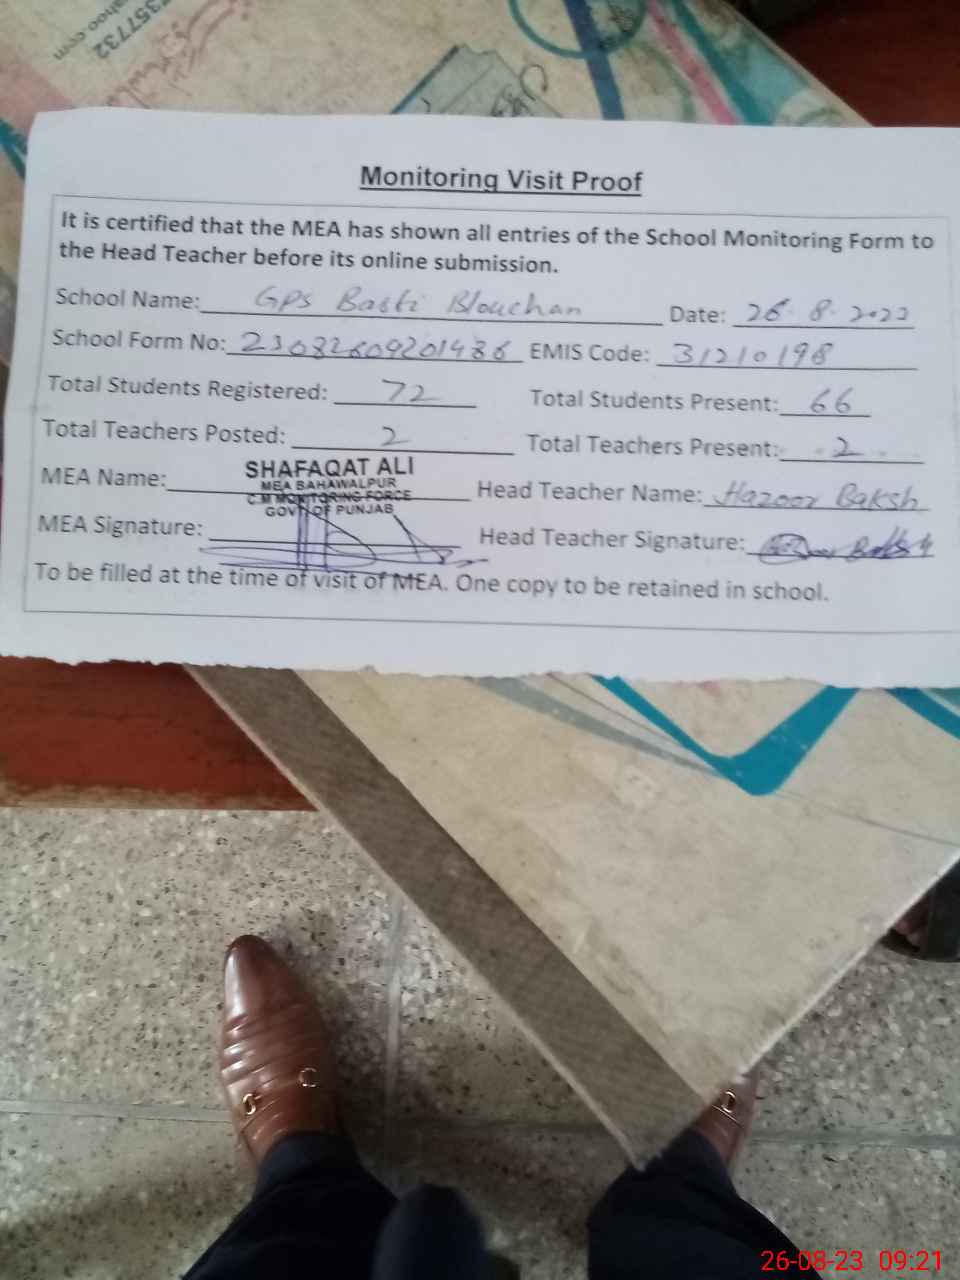 357732
ahoo.com
Monitoring Visit Proof
It is certified that the MEA has shown all entries of the School Monitoring Form to
the Head Teacher before its online submission.
School Name: GPS Basti Blouchan Date: 26-8-2023
School Form No: 23082609201486 EMIS Code: 31210198
Total Students Registered: 72 Total Students Present: 66
Total Teachers Posted: 2 Total Teachers Present: 2
MEA Name: SHAFAQAT ALI Head Teacher Name: Hazoor Baksh
MEA BAHAWALPUR
C.M MONITORING FORCE
GOVT OF PUNJAB
MEA Signature: Head Teacher Signature:
To be filled at the time of visit of MEA. One copy to be retained in school.
26-08-23 09:21